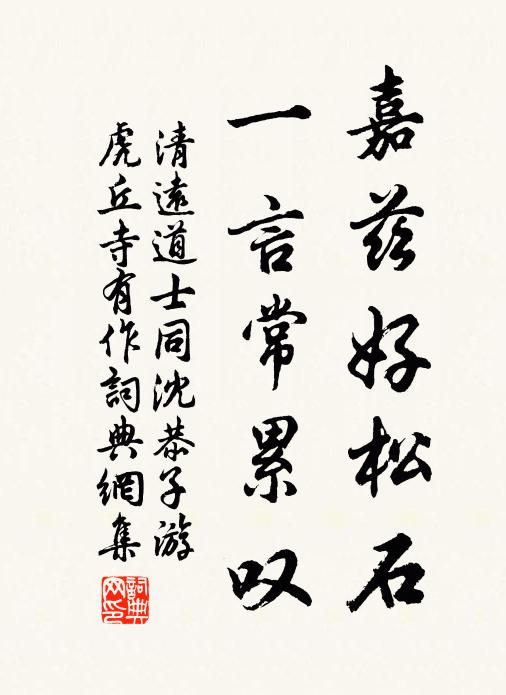 嘉茲好松石
一言常累叹
清遠道士同沈恭子游
虎丘寺有作詞典網集
詞典
网印